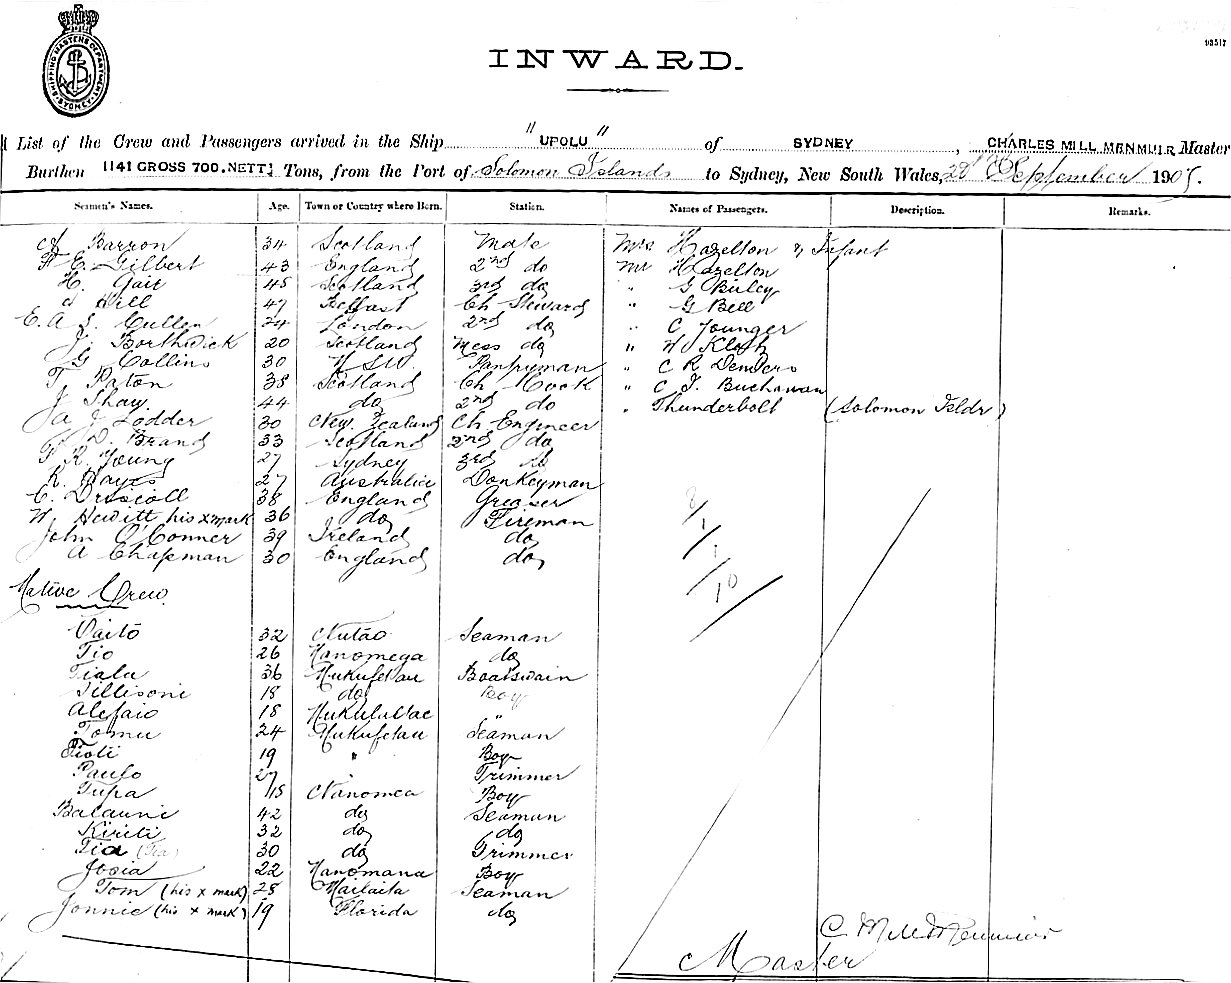 SHIPPING MASTERS DEPARTMENT SYDNEY
INWARD.
List of the Crew and Passengers arrived in the Ship "UPOLU" of SYDNEY, CHARLES MILL MENMUIR Master
Burthen 1141 GROSS 700. NETT. Tons, from the Port of Solomon Islands to Sydney, New South Wales, September 190
Seamen's Names. Age. Town or Country where Born. Station. Names of Passengers. Description. Remarks.
A Barron 34 Scotland Mate Mrs Hazelton & Infant
F E. Gilbert 43 England 2nd do Mr Hazelton
H. Gair 45 Scotland 3rd do " G Birley
Hill 47 Belfast Ch Steward " G Bell
E. A J. Cullen 24 London 2nd do " C Younger
J. Borthwick 20 Scotland Mess do "
G Collins 30 NSW Pantryman " C R
T Paton 38 Scotland Ch Cook " C J. Buchanan
J Shay 44 do 2nd do " Thunderbolt (Solomon Islds)
A J Lodder 30 New Zealand Ch Engineer
D. Brand 33 Scotland 2nd do
F R. Young 27 Sydney 3rd do
R. Hayes 27 Australia Donkeyman
C. Driscoll 38 England Greaser
W. Hewitt his x mark 36 do Fireman
John O'Conner 39 Ireland do
A Chapman 30 England do
Native Crew.
Vaito 32 Nutao Seaman
Tio 26 Nanomega do
Tiala 36 Nukufetau Boatswain
Tillisoni 18 do Boy
Alefaio 18
Tomu 24 Nukufetau Seaman
Tioti 19 " Boy
Paulo 27 Trimmer
Tupa 18 Nanomea Boy
Balauni 42 do Seaman
Kiriti 32 do do
Tia (Tia) 30 do Trimmer
Josia 22 Nanomana Boy
Tom (his x mark) 28 Mailaita Seaman
Jonnie (his x mark) 19 Florida do
C. Mill Menmuir
Master